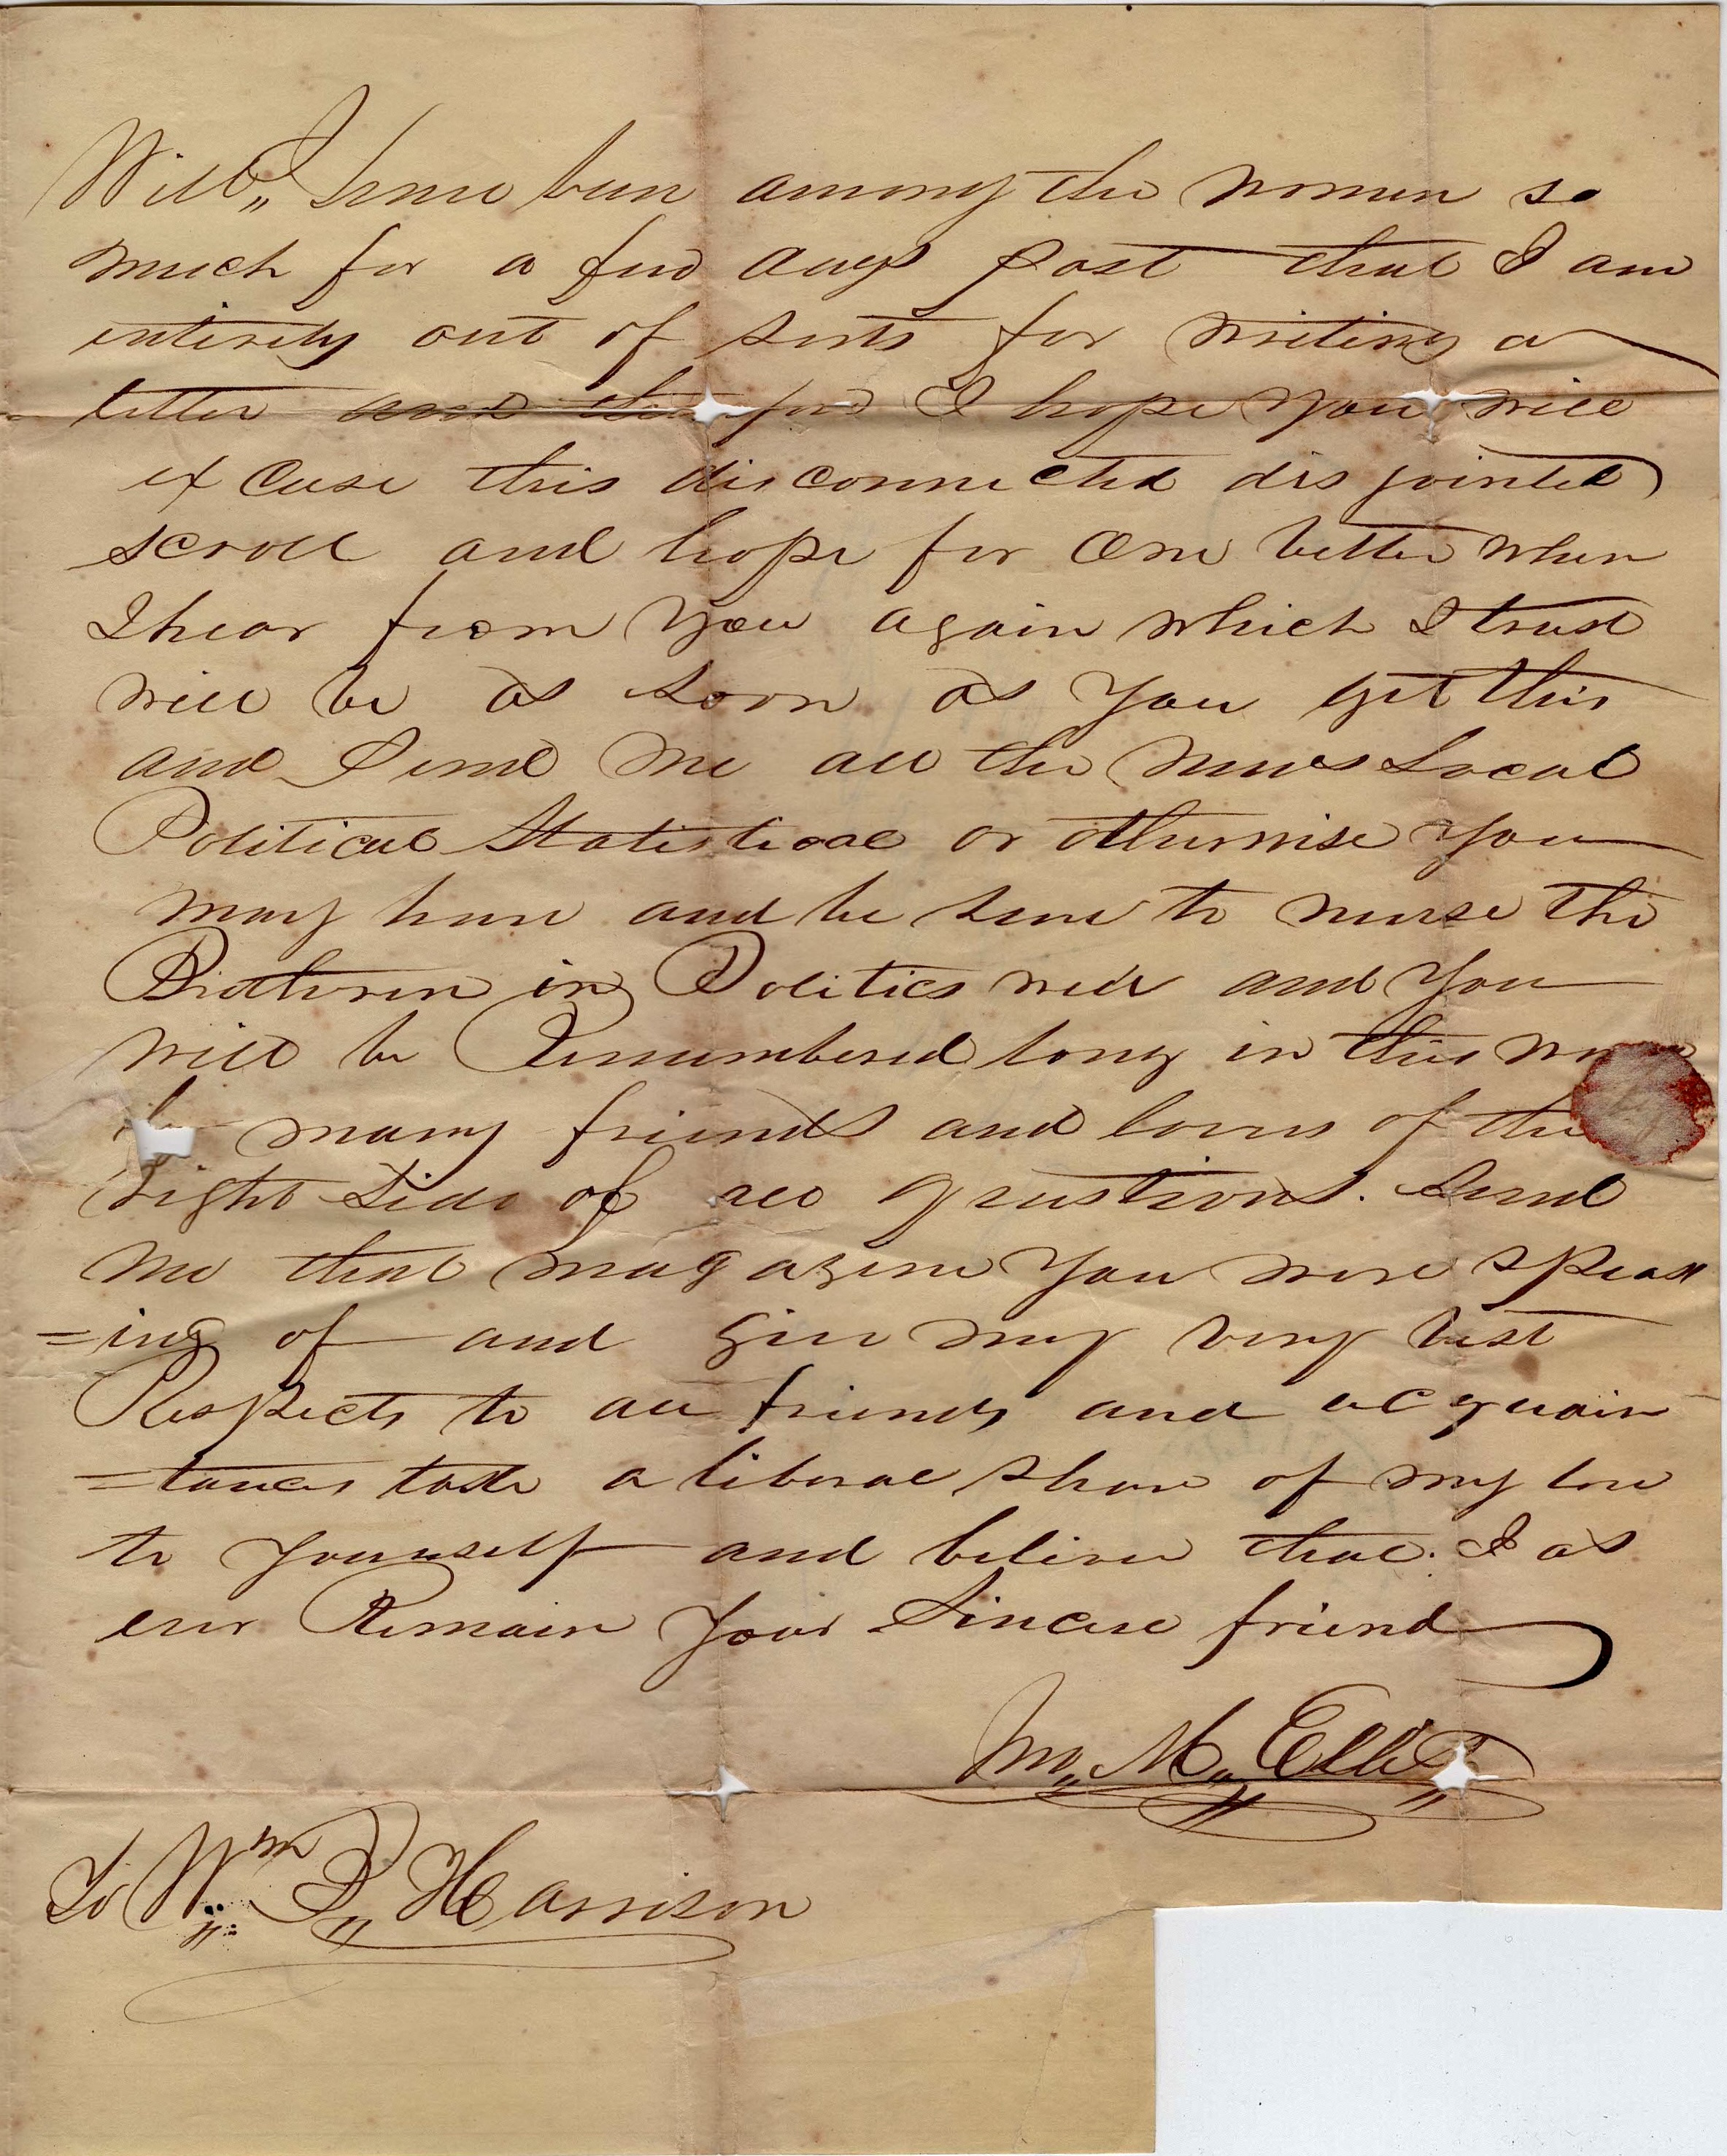 Will,, I have been among the women so
much for a few days past that I am
entirely out of sorts for writing a
letter and therefore I hope you will
excuse this disconnected disjointed
scroll and hope for one better when
I hear from you again which I trust
will be as soon as you get this
and Send me all the news Local
Political Statistical or otherwise you
may have and be sure to nurse the
Brotheren in Politics well and you
will be Remembered long in this
many friends and lovers of the
right side of all questions. Send
me that magazine you were speak
=ing of and give my very best
Respects to all friends and acquain
=tances take a liberal share of my love
to yourself and believe that I as
ever Remain Your Sincere friend
M. Ellis
To Wm Harrison